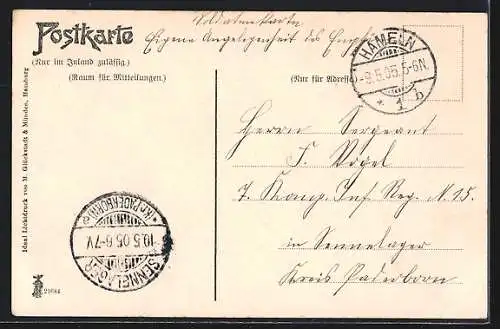 Soldaten Karte
Postkarte
Eigene Angelegenheit des Empf
(Nur im Inland zulässig.)
(Raum für Mitteilungen.)
(Nur für Adresse
HAMELN
-9.5.05.5-6N.
* 1 b
Herrn Sergeant
F. Vogel
7. Komp. Inf. Reg. N. 15.
in Sennelager
Kreis Paderborn
SENNELAGER
10.5.05.6-7V
*(Kr. PADERBORN)a
Ideal Lichtdruck von M. Glückstadt & Münden, Hamburg